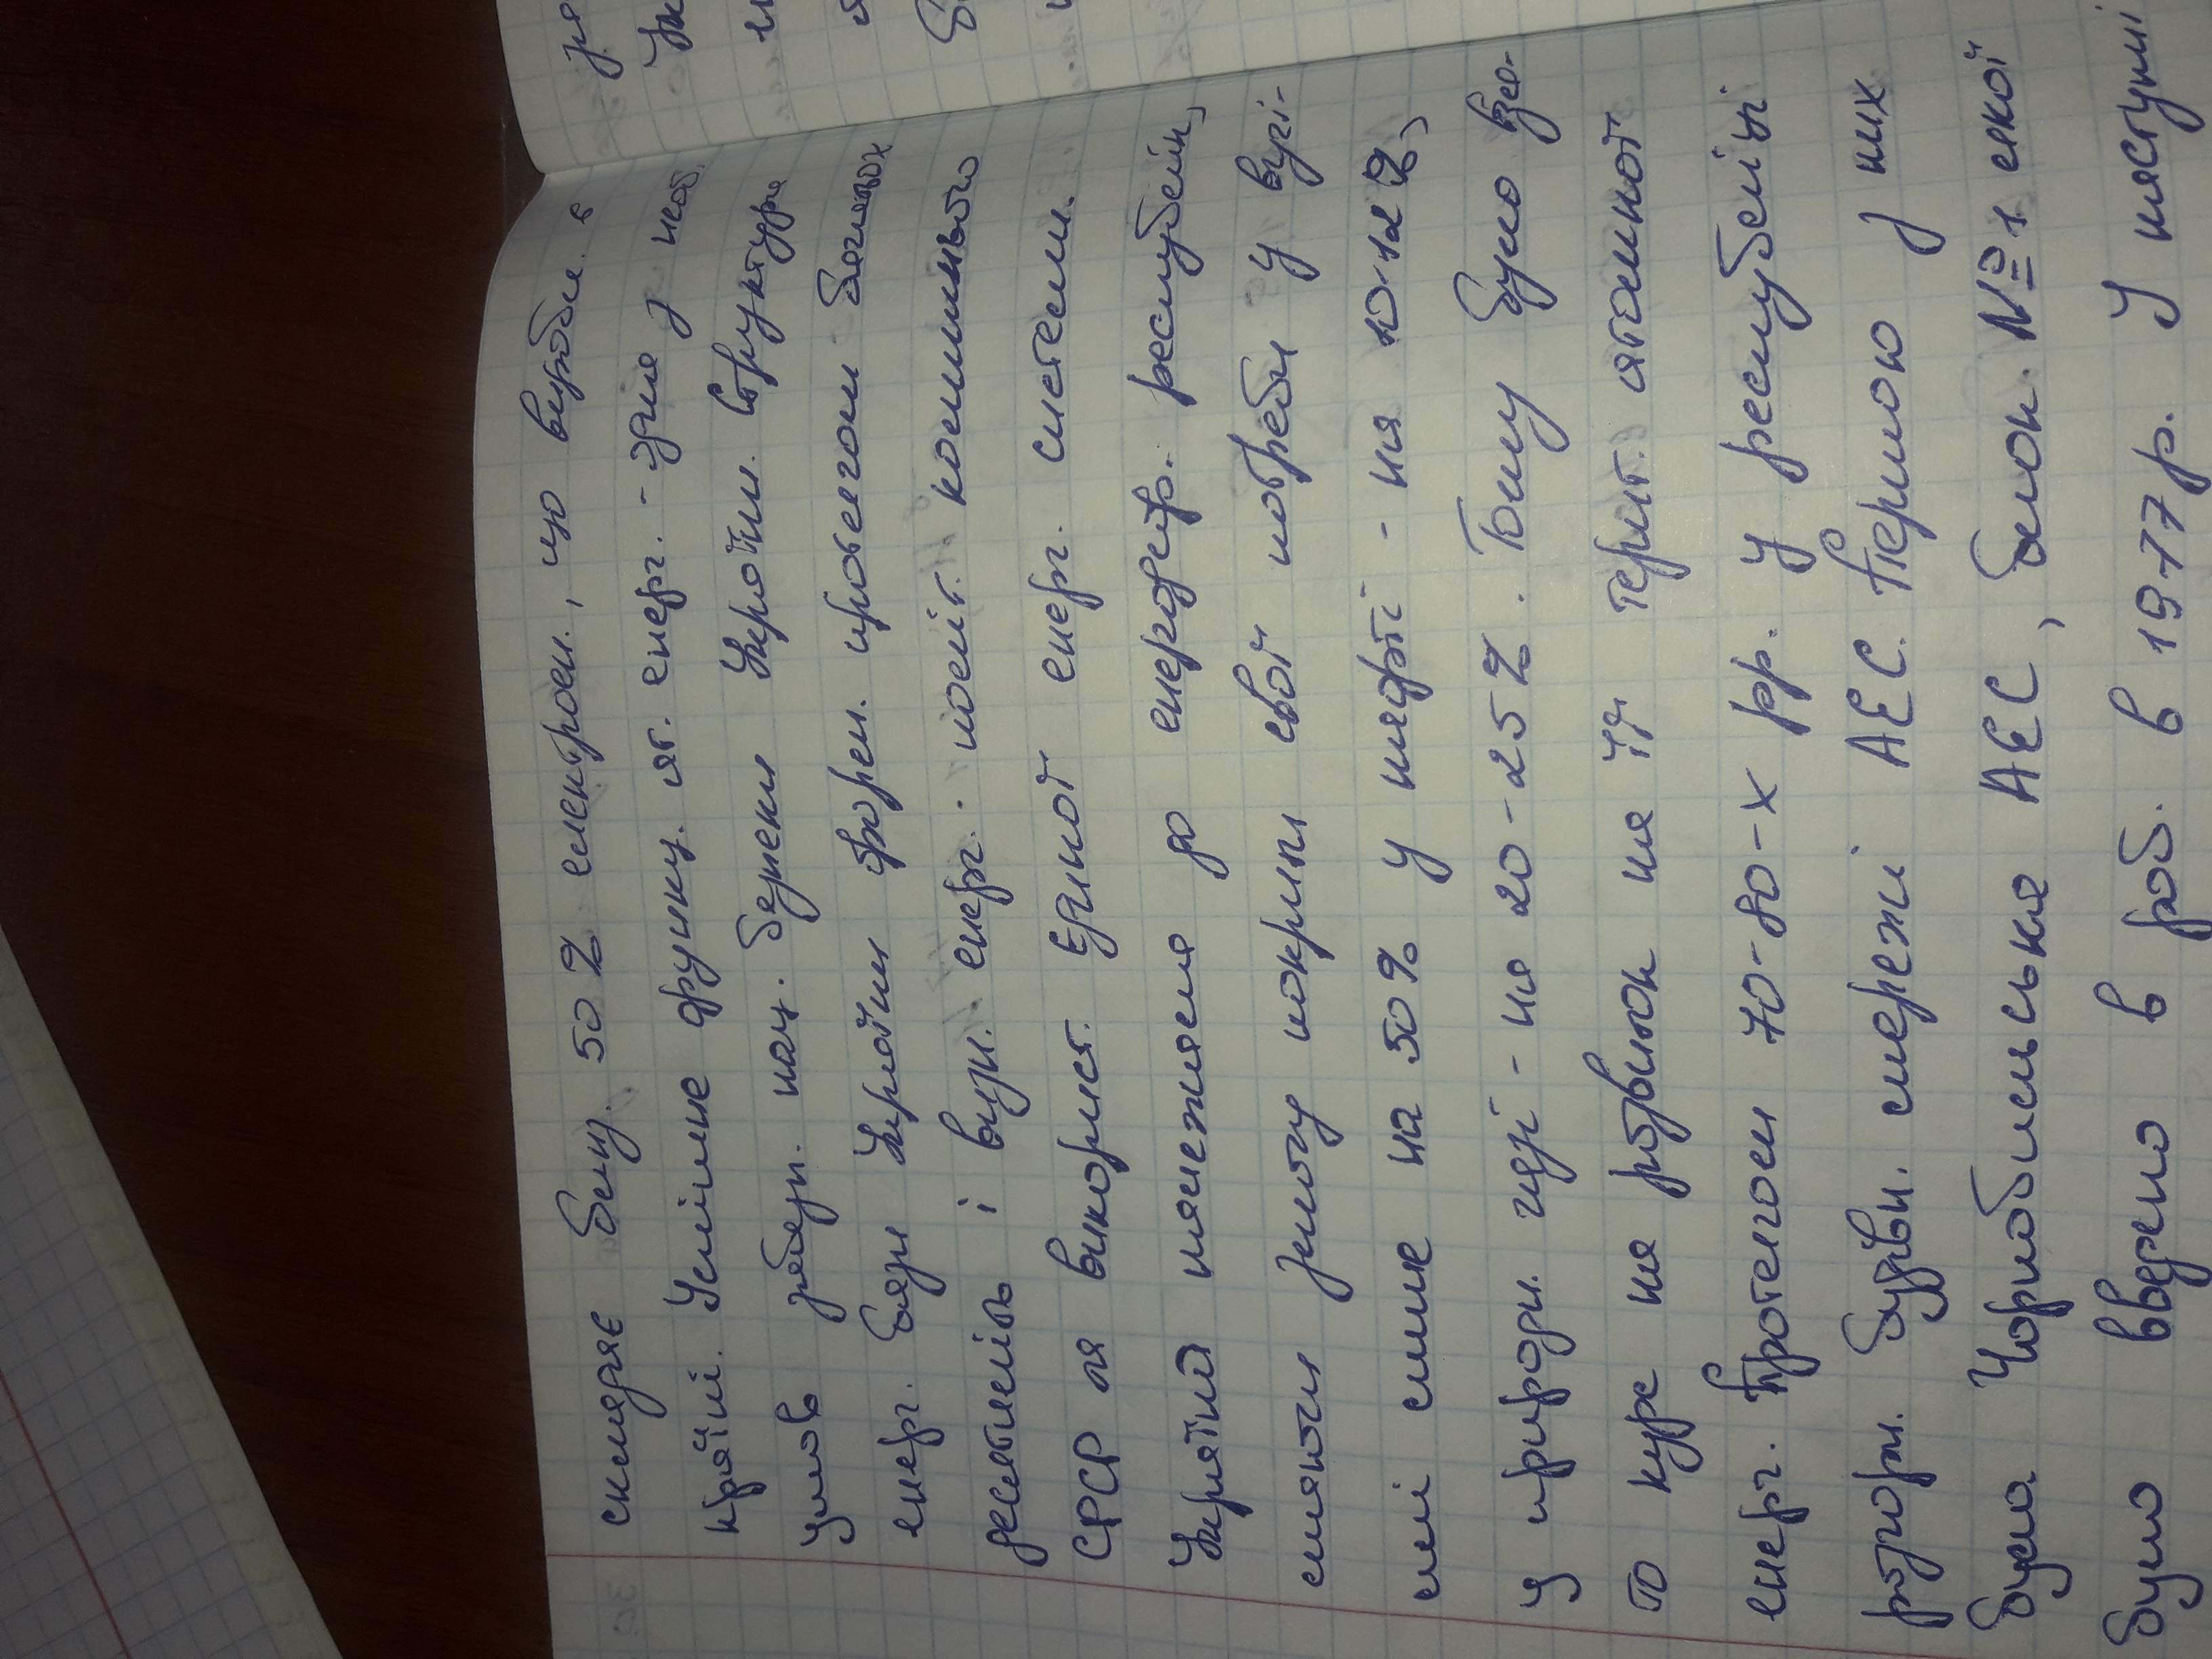 складає близ. 50 % електроен., що виробл. в
країні. Успішне функц. ат. енерг. - одна з нов.
умов забезп. нац. безпеки України. Структура
енерг. бази України форм. протягом багатьох
десятиліть і вузи. енерг. носіїв колишнього
СРСР та використ. Єдиної енерг. системи.
Україна належала до енергодеф. республік,
оскільки змогу покрити свої потреби у вугі-
ллі лише на 50% у нафті - на 10-12 %,
у природн. газі - на 20-25 %. Тому було взя-
то курс на розвиток на її терит. атомної
енерг. Протягом 70-80-х рр. у республіці
розгорн. будівн. мережі АЕС. Першою з них
була Чорнобильська АЕС, блок №1 якої
було введено в роб. в 1977 р. У наступні